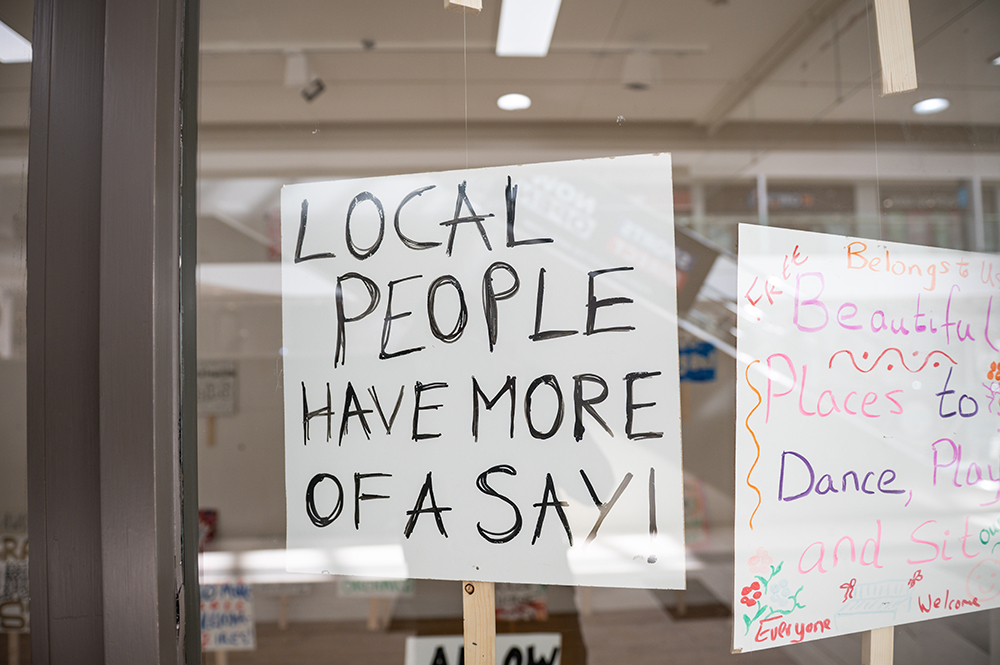 LOCAL
PEOPLE
HAVE MORE
OF A SAY!
Belongs to Us
Beautiful
Places to
Dance, Play
and Sit
Welcome
Everyone